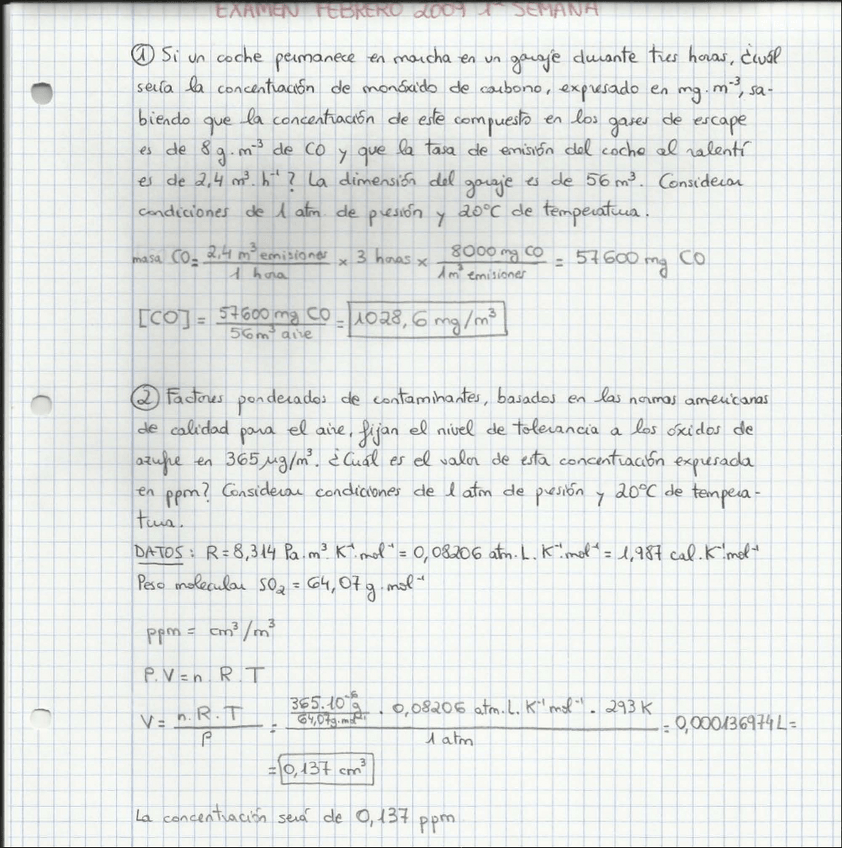 EXAMEN FEBRERO 2009 1ª SEMANA
① Si un coche permanece en marcha en un garaje durante tres horas, ¿cuál
sería la concentración de monóxido de carbono, expresado en mg·m⁻³, sa-
biendo que la concentración de este compuesto en los gases de escape
es de 8 g·m⁻³ de CO y que la tasa de emisión del coche al ralentí
es de 2,4 m³·h⁻¹? La dimensión del garaje es de 56 m³. Considerar
condiciones de 1 atm de presión y 20°C de temperatura.
masa CO = 2,4 m³ emisiones / 1 hora × 3 horas × 8000 mg CO / 1 m³ emisiones = 57600 mg CO
[CO] = 57600 mg CO / 56 m³ aire = 1028,6 mg/m³
② Factores ponderados de contaminantes, basados en las normas americanas
de calidad para el aire, fijan el nivel de tolerancia a los óxidos de
azufre en 365 µg/m³. ¿Cuál es el valor de esta concentración expresada
en ppm? Considerar condiciones de 1 atm de presión y 20°C de tempera-
tura.
DATOS: R = 8,314 Pa·m³·K⁻¹·mol⁻¹ = 0,08206 atm·L·K⁻¹·mol⁻¹ = 1,987 cal·K⁻¹mol⁻¹
Peso molecular SO₂ = 64,07 g·mol⁻¹
ppm = cm³/m³
P.V = n.R.T
V = n.R.T / P = 365·10⁻⁶g / 64,07g·mol⁻¹ · 0,08206 atm.L.K⁻¹mol⁻¹ · 293 K / 1 atm = 0,000136974 L =
= 0,137 cm³
La concentración será de 0,137 ppm